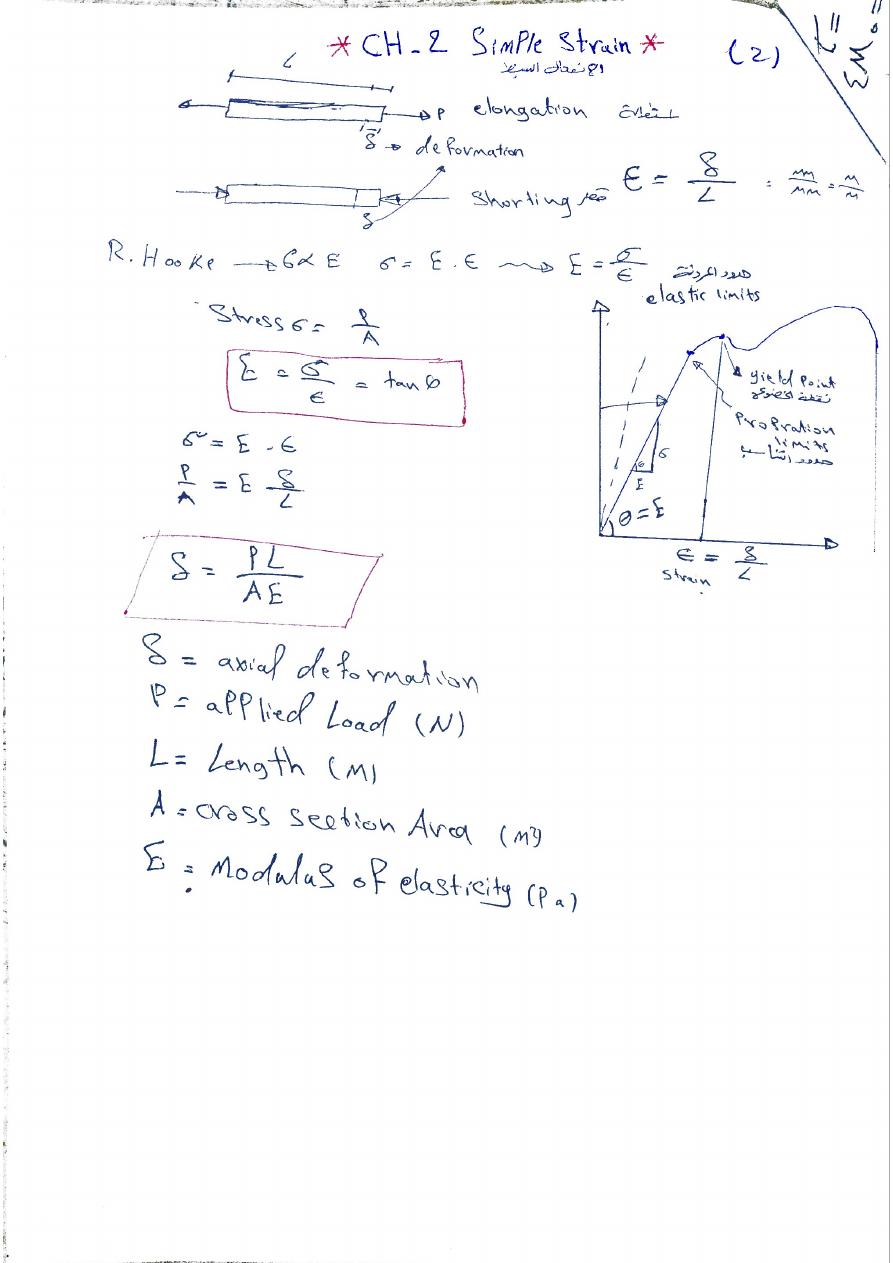 * CH-2 Simple Strain * (2)
الانفعال البسيط
L
P elongation استطالة
δ → deformation
Shorting
δ
ϵ = δ/L = mm/mm = M/M
R. Hooke → σ∝ E σ = E . ϵ ⟿ E = σ/ϵ
حدود المرونة
elastic limits
Stress σ = P/A
E = σ/ϵ = tan θ
yield Point
نقطة الخضوع
Propration
limits
حدود التناسب
σ = E . ϵ
P/A = E δ/L
σ
θ
E
θ = E
ϵ = δ/L
strain
δ = PL/AE
δ = axial deformation
P = applied Load (N)
L = Length (M)
A = cross section Area (M²)
E = Modulas of elasticity (Pa)
τ =
ΣM₀ =